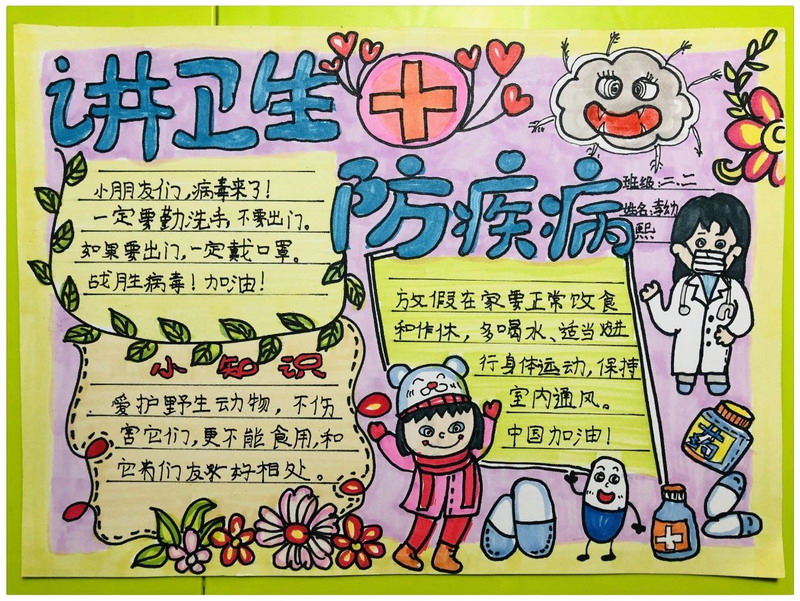 讲卫生
防疾病
班级:二、二
姓名:李幼
熙
小朋友们,病毒来了!
一定要勤洗手,不要出门。
如果要出门,一定戴口罩。
战胜病毒!加油!
放假在家要正常饮食
和作休,多喝水、适当进
行身体运动,保持
室内通风。
中国加油!
小知识
爱护野生动物,不伤
害它们,更不能食用,和
它们友好相处。
药